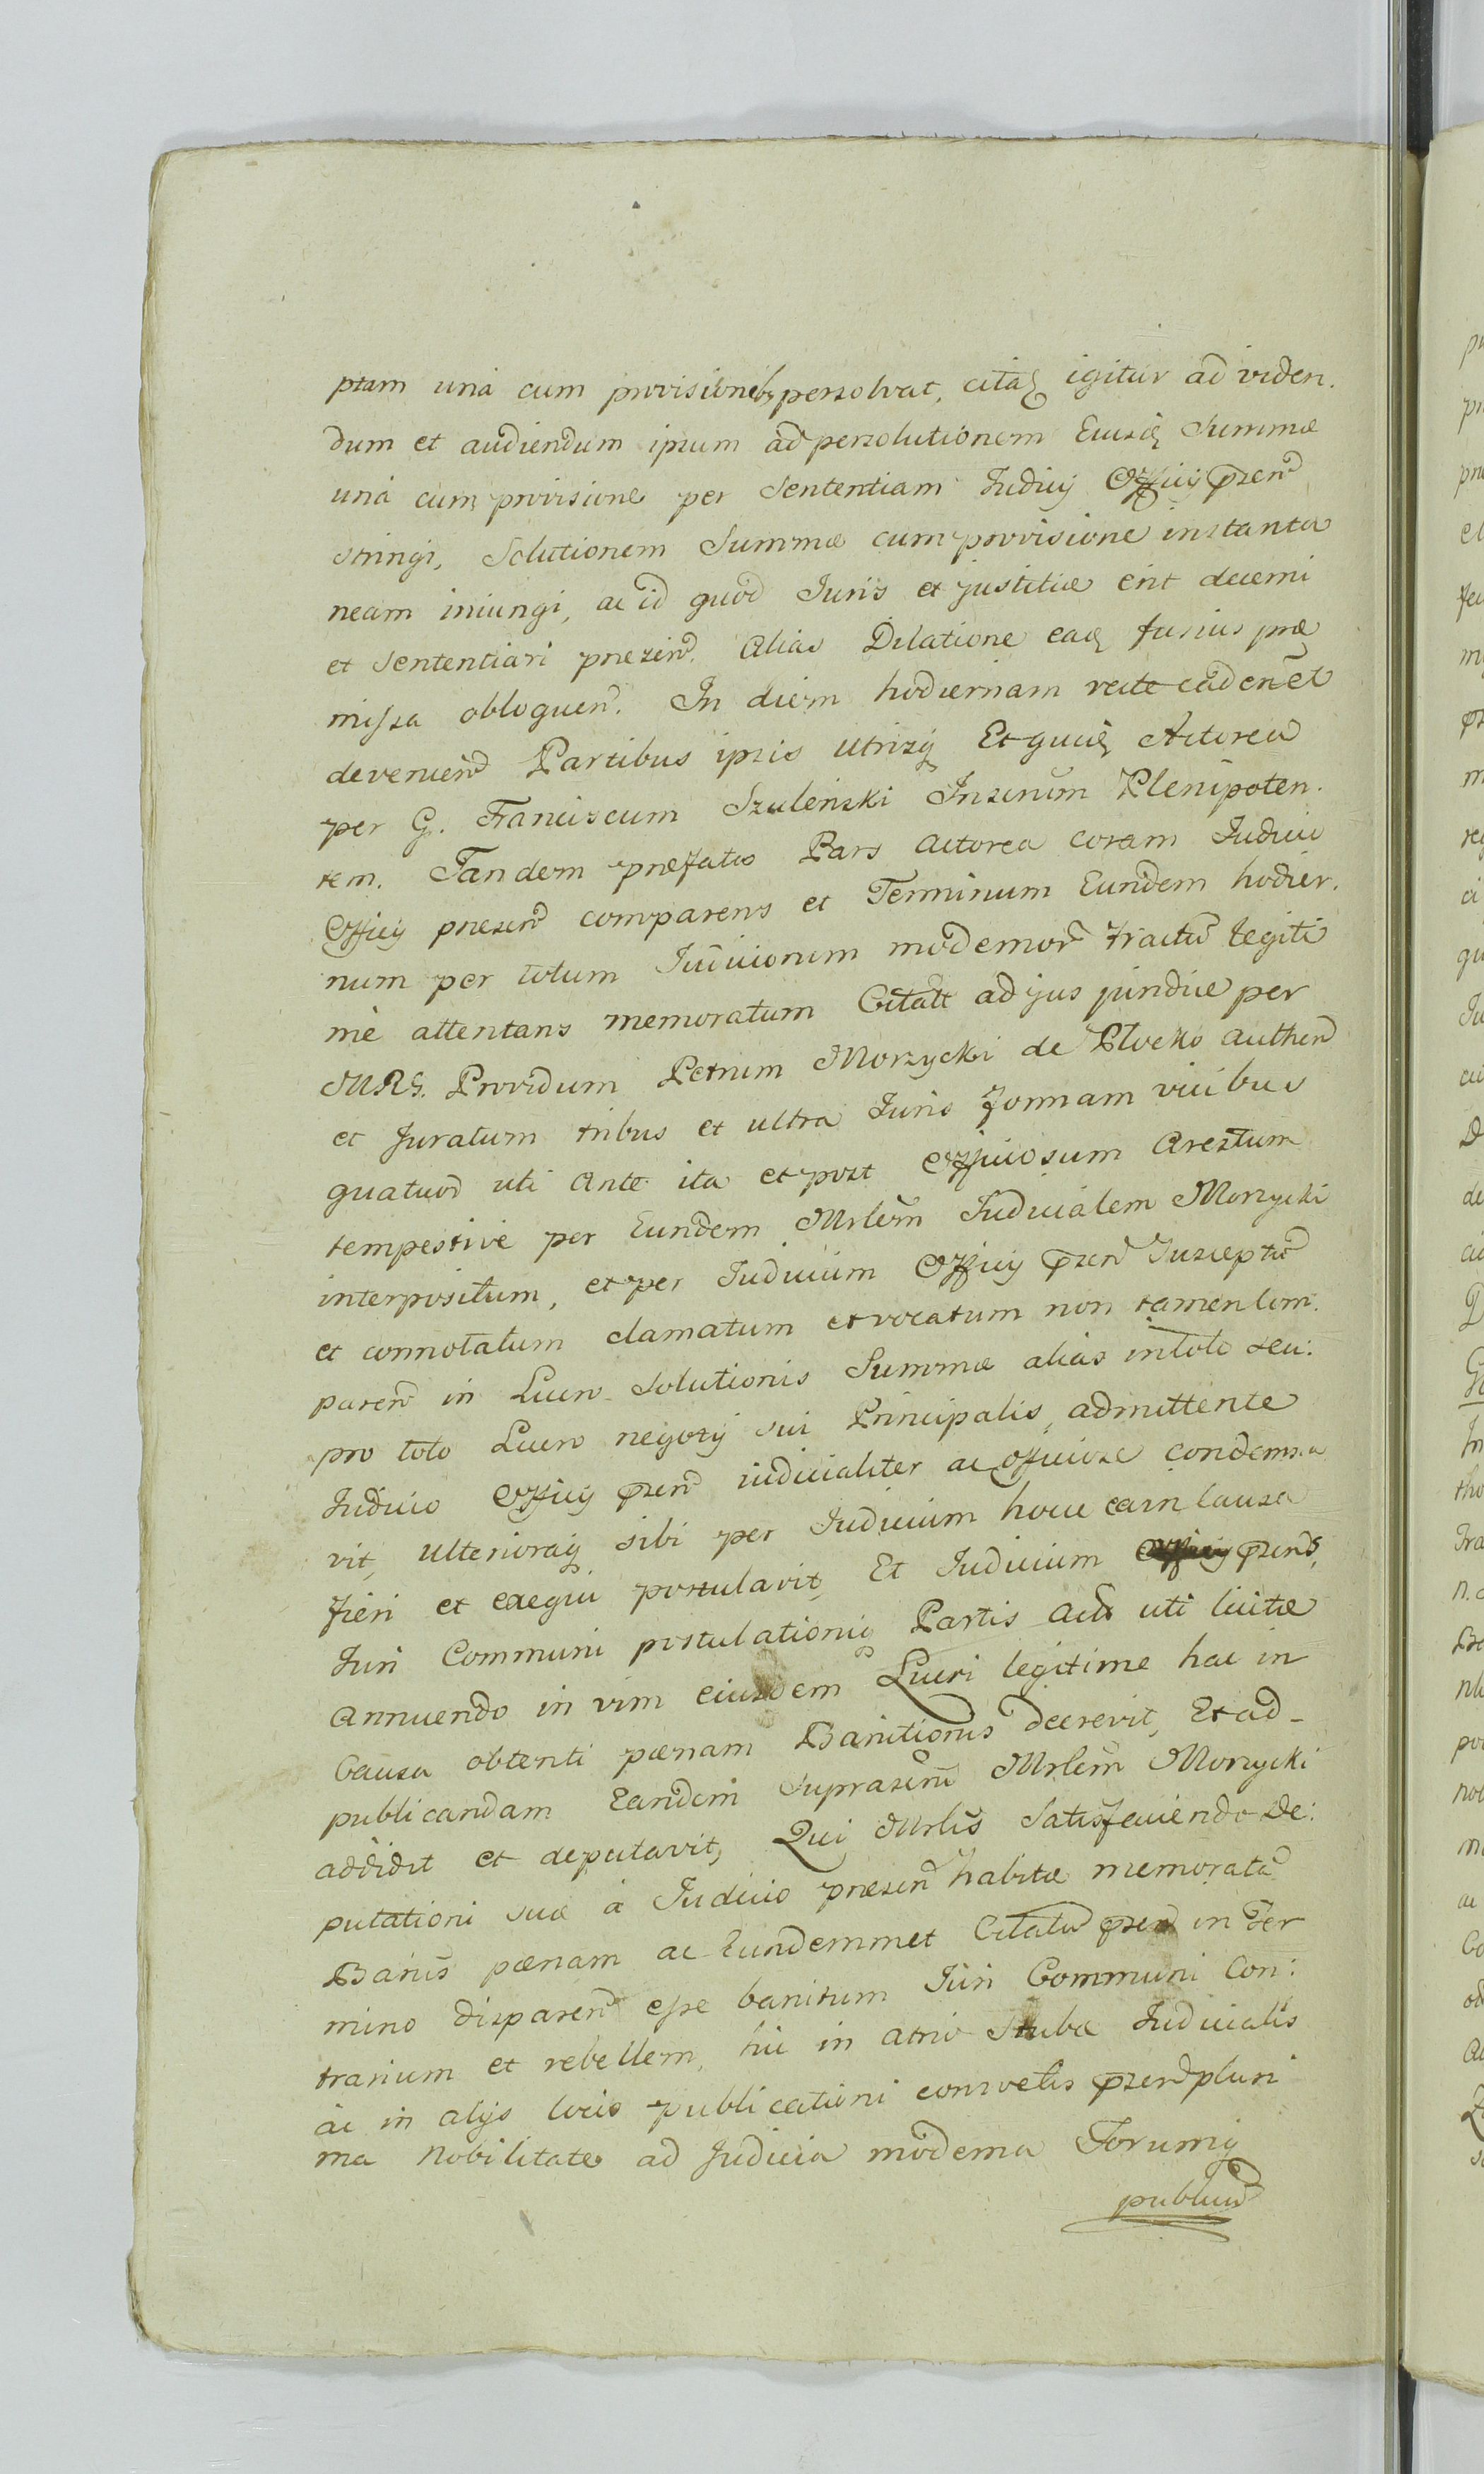 ptam unà cum provisionibq persolvat, citaq igitur ad viden.
dum et audiendum ipsum ad persolutionem Eiusq Summæ
unà cum provisione per Sententiam Iudicij Officij pnsen
stringi, Solutionem Summæ cum provisione instanta
neam iniungi, ac id quod Iuris et justitiæ erit decerni
et Sententiari præsen. Alias Dilatione eaq fusius præ
missa obloquen. In diem hodiernam recte caden et
devenien Partibus ipsis utrisq Et quiq Actorea
per G. Franciscum Szulenski Inserum Plenipoten.
tem. Tandem præfata Pars actorea coram Iudicio
Officij præsen comparens et Terminum Eundem hodier.
num per totum Iudiciorum modernor tractu legiti
mè attentans memoratum Citatt ad jus juridice per
MRG. Providum Petrum Morzycki de Plocko authen
et Juratum tribus et ultra Iuris formam vicibus
quatuor uti ante ita et post Officiosum Arestum
tempestive per Eundem Mrlem Iudicialem Morzycki
interpositum, et per Iudicium Officij pnsen Susceptu
et connotatum clamatum et vocatum non tamen com.
paren in Lucro Solutionis Summæ alias in toto seu:
pro toto Lucro negotij sui Principalis, admittente
Iudicio Officij pnsen iudicialiter ac officiose condemna
vit, ulterioraq sibi per Iudicium hocce ea in Causa
fieri et exequi postulavit, Et Iudicium pnsens,
Iuri Communi postulationiq Partis Act uti licitæ
annuendo in vim eiusdem Lucri legitime hac in
Causa obtenti pænam Banitionis decrevit, Et ad-
publicandam Eandem Suprascrm Mrlem Morzycki
addidit et deputavit, Qui Mrlis Satisfaciendo De:
putationi suæ à Iudicio præsen habitæ memorata
Banis pænam ac Eundemmet Citatu pnsen in Ter
mino disparen esse banitum Iuri Communi Con:
trarium et rebellem, hic in atrio Stubæ Iudicialis
ac in alijs locis publicationi consvetis pnsen pluri
ma Nobilitate ad Judicia moderna Forumq
publica